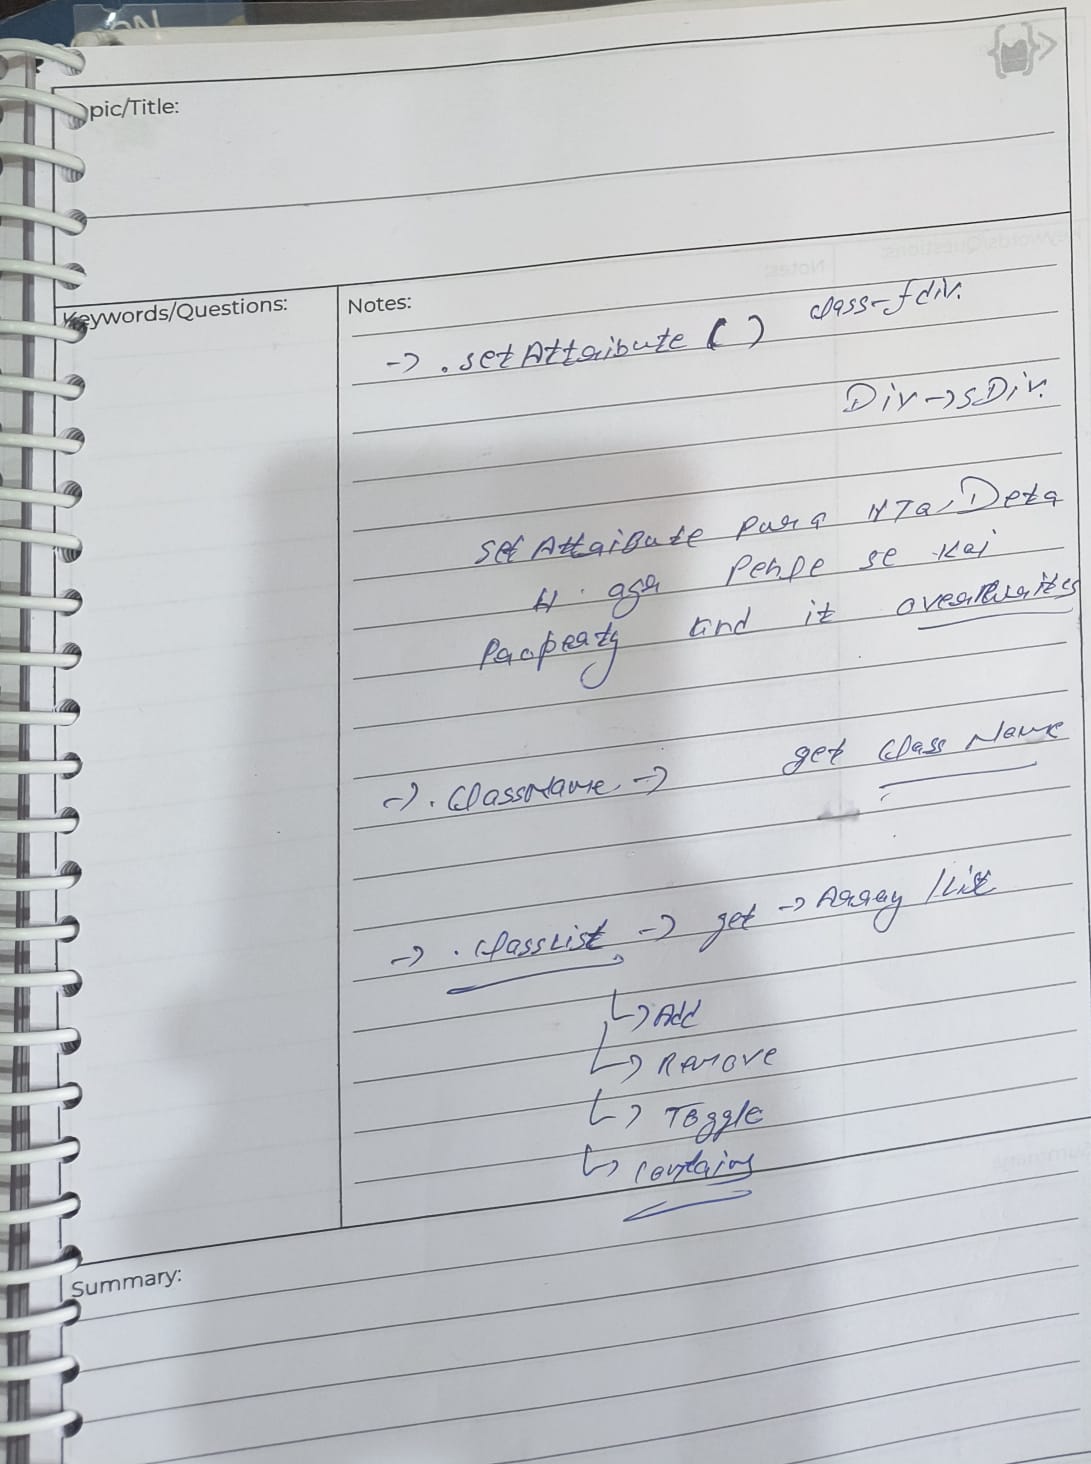 Topic/Title:
Keywords/Questions:
Notes:
-> .setAttribute ( ) class-fdiv.
Div->sDiv.
set AttriBute pura HTa Deta
H. agr Pehle se koi
Property and it overwrites
-> . ClassName -> get Class Name
-> . ClassList -> get -> Array list
-> Add
-> Remove
-> Toggle
-> contains
Summary: